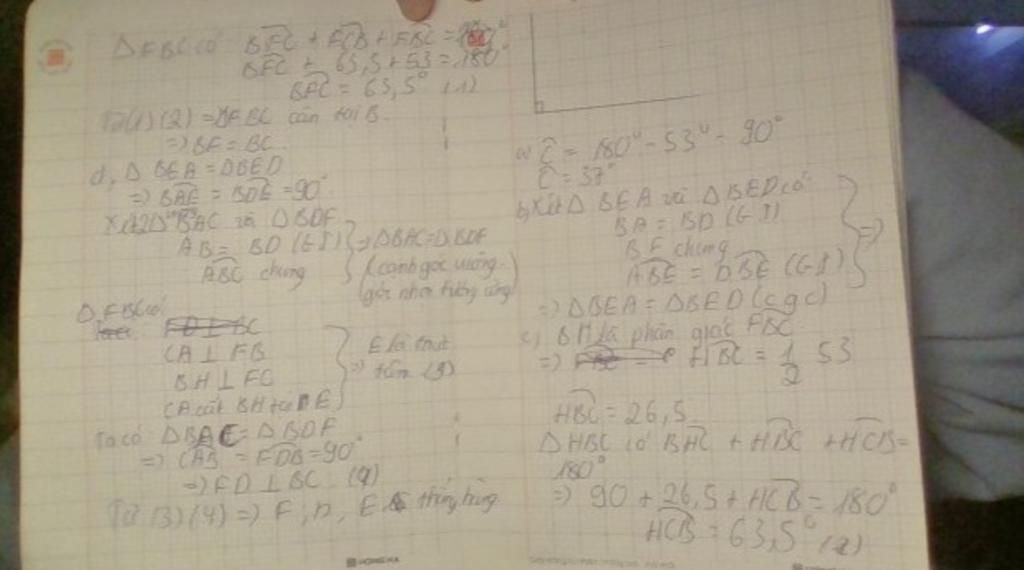 ΔFBC có BFC + FCB + FBC = 180°
BFC + 63,5 + 53 = 180°
BFC = 63,5° (1)
Từ (1) (2) => ΔFBC cân tại B
=> BF = BC
d, ΔBEA = ΔBED
=> BAE = BDE = 90°
Xét 2Δ BAC và ΔBDF
AB = BD (GT)
ABC chung
=> ΔBAC = ΔBDF
(cạnh góc vuông
góc nhọn tương ứng)
ΔFBC có
CA ⊥ FB
BH ⊥ FC
CA cắt BH tại E
=> E là trực
tâm (3)
Ta có ΔBAC = ΔBDF
=> CAB = FDB = 90°
=> FD ⊥ BC (4)
Từ (3) (4) => F, D, E thẳng hàng
HONG HA
a) C = 180° - 53° - 90°
C = 37°
b) Xét ΔBEA và ΔBED có
BA = BD (GT)
BE chung
ABE = DBE (GT)
=>
=> ΔBEA = ΔBED (cgc)
c) BH là phân giác FBC
=> HBC = 1/2 53
HBC = 26,5
ΔHBC có BHC + HBC + HCB =
180°
=> 90 + 26,5 + HCB = 180°
HCB = 63,5° (2)